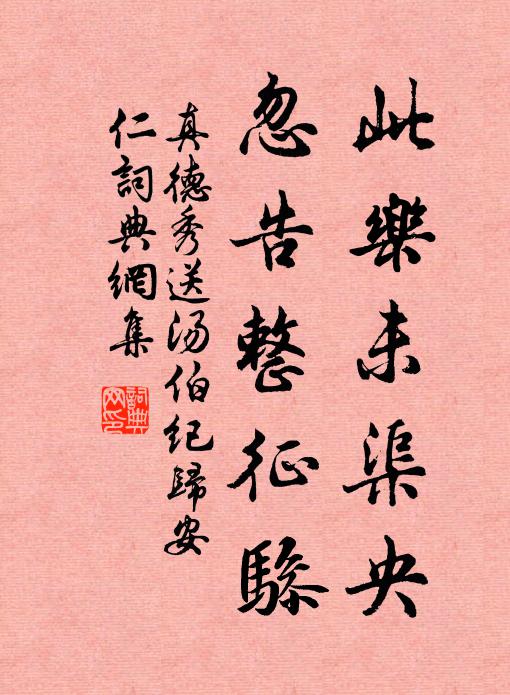 此樂未渠央
忽告整征驂
真德秀送汤伯纪歸安
仁詞典網集
詞典
网印